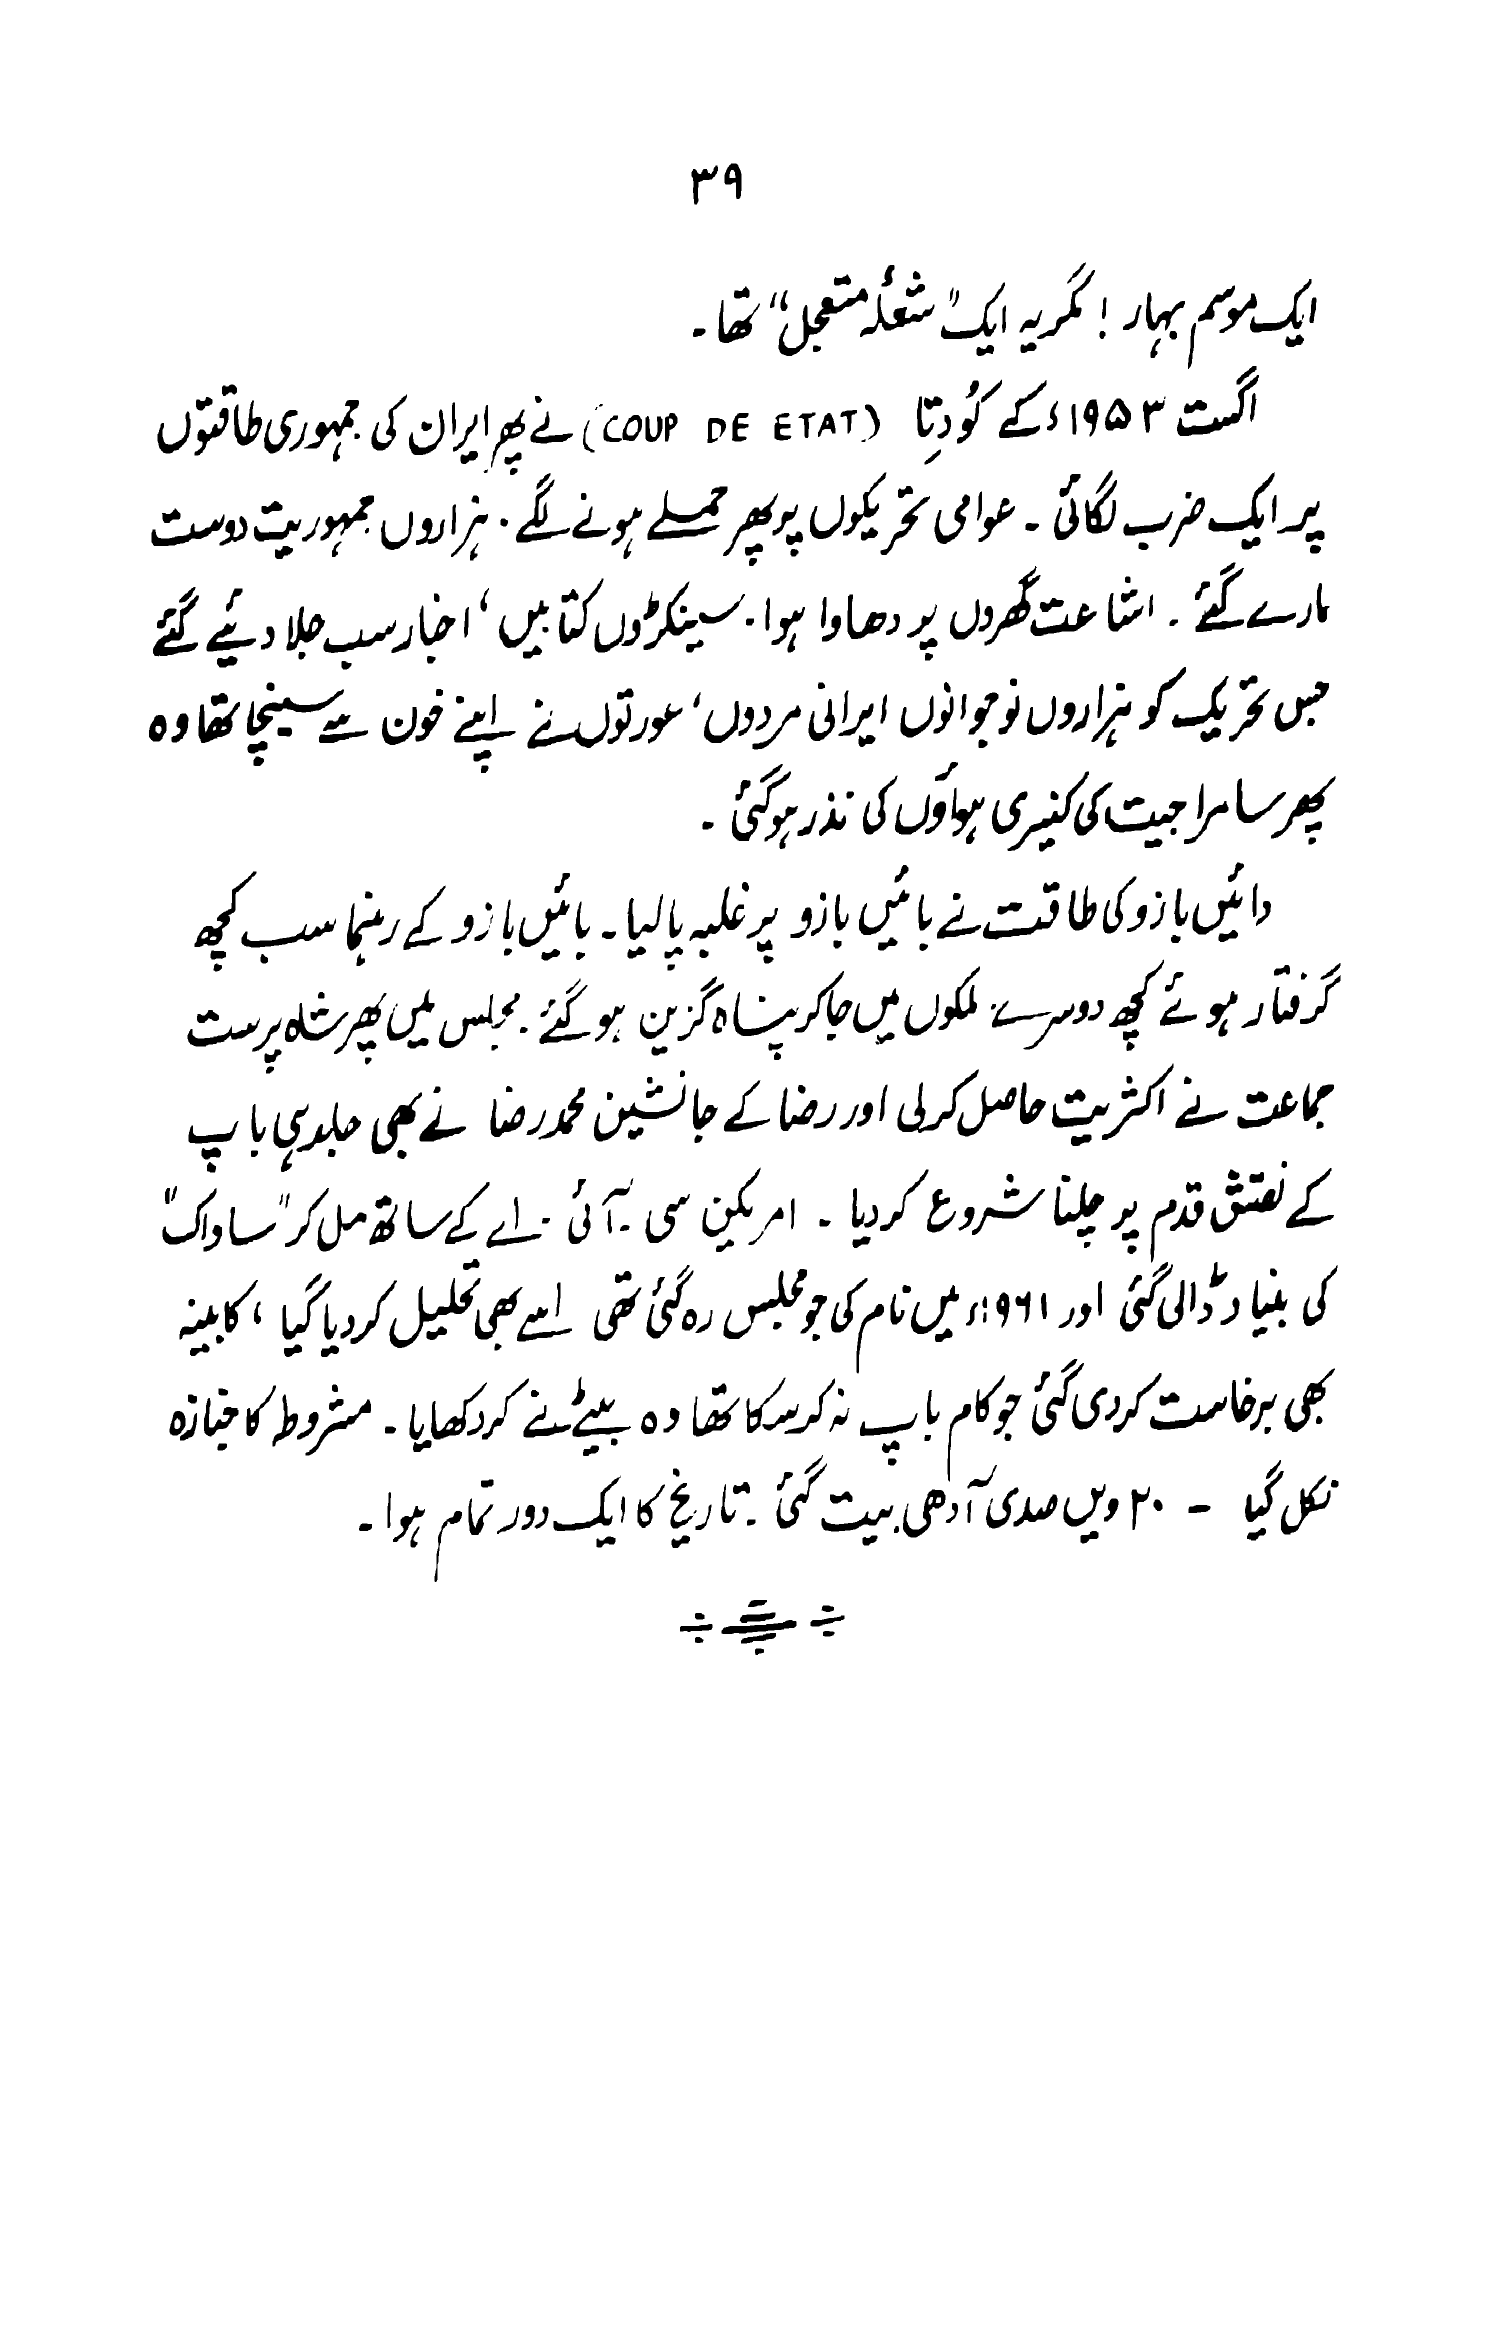 ۳۹
ایک موسم بہار ! مگر یہ ایک "شعلۂ متعجل" تھا۔
اگست ۱۹۵۳ء کے کُودِتا (COUP DE ETAT) نے پھر ایران کی جمہوری طاقتوں
پر ایک ضرب لگائی ۔ عوامی تحریکوں پر پھر حملے ہونے لگے ۔ ہزاروں جمہوریت دوست
مارے گئے ۔ اشاعت گھروں پر دھاوا ہوا ۔ سینکڑوں کتابیں ، اخبار سب جلا دئیے گئے
جس تحریک کو ہزاروں نوجوانوں ایرانی مردوں ، عورتوں نے اپنے خون سے سینچا تھا وہ
پھر سامراجیت کی ہواؤں کی نذر ہوگئی ۔
دائیں بازو کی طاقت نے بائیں بازو پر غلبہ پالیا ۔ بائیں بازو کے رہنما سب کچھ
گرفتار ہوئے کچھ دوسرے ملکوں میں جاکر پناہ گزین ہو گئے ۔ مجلس میں پھر شاہ پرست
جماعت نے اکثریت حاصل کرلی اور رضا کے جانشین محمد رضا نے بھی جلد ہی باپ
کے نقش قدم پر چلنا شروع کردیا ۔ امریکن سی ۔ آئی ۔ اے کے ساتھ مل کر "ساواک"
کی بنیاد ڈالی گئی اور ۱۹۶۱ء میں نام کی جو مجلس رہ گئی تھی اسے بھی تحلیل کردیا گیا ، کابینہ
بھی برخاست کردی گئی جو کام باپ نہ کرسکا تھا وہ بیٹے نے کر دکھایا ۔ مشروطہ کا جنازہ
نکل گیا ۔ ۲۰ ویں صدی آدھی بیت گئی ۔ تاریخ کا ایک دور تمام ہوا ۔